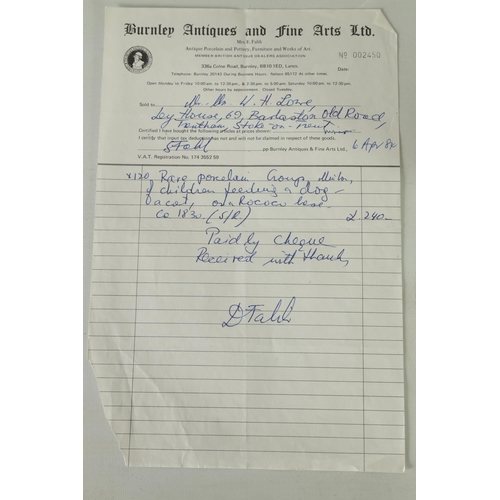 Burnley Antiques and Fine Arts Ltd.
Mrs E. Fahlt
Antique Porcelain and Pottery, Furniture and Works of Art.
MEMBER BRITISH ANTIQUE DEALERS ASSOCIATION
No 002450
336a Colne Road, Burnley, BB10 1ED, Lancs.
Date:
Telephone: Burnley 20143 During Business Hours. Nelson 65172 At other times.
Open Monday to Friday 10:00 a.m. to 12:30 p.m., & 2:00 p.m. to 5:00 p.m. Saturday 10:00 a.m. to 12:30 p.m.
Other hours by appointment. Closed Tuesday.
Sold to Mr. Mrs. W. H. Lowe,
Ley House, 69, Barlaston Old Road,
Trentham, Stoke-on-Trent
Certified I have bought the following articles at prices shown
I certify that input tax deduction has not and will not be claimed in respect of these goods.
pp Burnley Antiques & Fine Arts Ltd.,
6 Apr 84
V.A.T. Registration No. 174 3552 59
X120 Rare porcelain Group,
of children feeding a dog
a cat, on a Rococo base
Co 1830. (S/R) £ 240-
Paid by Cheque
Received with thanks,